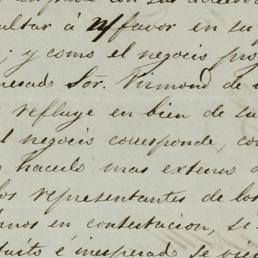 ultar á su favor en su
; y como el negocio pro
esado Sor. Virmond de
refluye en bien de su
l negocio corresponde, co
hacerlo mas extenso
los representantes de los
anos en contestacion, si
é inesperado se vie